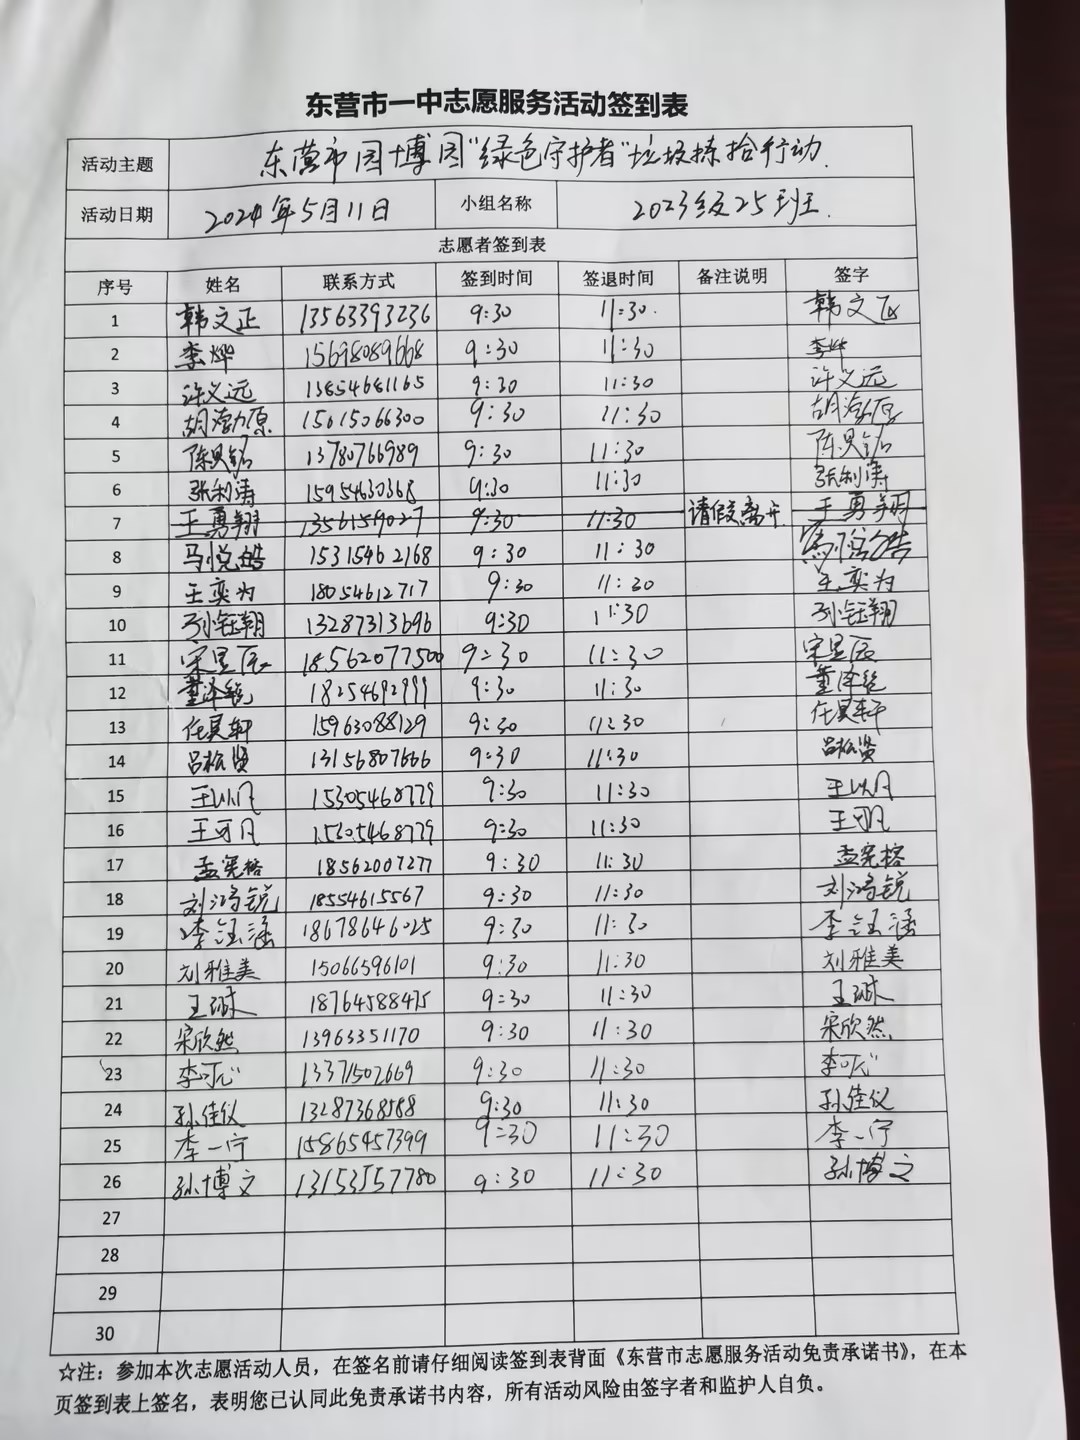 东营市一中志愿服务活动签到表
活动主题 东营市园博园“绿色守护者”垃圾拣拾行动.
活动日期 2024年5月11日 小组名称 2023级25班.
志愿者签到表
序号 姓名 联系方式 签到时间 签退时间 备注说明 签字
1 韩文正 13563393236 9:30 11:30. 韩文正
2 李烨 15698089668 9:30 11:30 李烨
3 许义远 13854681165 9:30 11:30 许义远
4 胡渤原 15615066300 9:30 11:30 胡渤原
5 陈昊铭 13780766989 9:30 11:30 陈昊铭
6 张利涛 15954630368 9:30 11:30 张利涛
7 王勇翔 1356159027 9:30 11:30 请假离开. 王勇翔
8 马悦皓 15315462168 9:30 11:30 马悦皓
9 王奕为 18054612717 9:30 11:30 王奕为
10 孙钰翔 13287313696 9:30 11:30 孙钰翔
11 宋昱辰 18562077500 9:30 11:30 宋昱辰
12 董泽铭 18254692999 9:30 11:30 董泽铭
13 任昊轩 15963088129 9:30 11:30 任昊轩
14 吕松贤 13156807666 9:30 11:30 吕松贤
15 王以凡 15305468779 9:30 11:30 王以凡
16 王可凡 15305468779 9:30 11:30 王可凡
17 孟宪榕 18562007277 9:30 11:30 孟宪榕
18 刘鸿锐 18554615567 9:30 11:30 刘鸿锐
19 李钰涵 18678646025 9:30 11:30 李钰涵
20 刘雅美 15066596101 9:30 11:30 刘雅美
21 王琡 18764588475 9:30 11:30 王琡
22 宋欣然 13963351170 9:30 11:30 宋欣然
23 李可心 13371502669 9:30 11:30 李可心
24 孙佳仪 13287368588 9:30 11:30 孙佳仪
25 李一宁 15865457399 9:30 11:30 李一宁
26 孙博文 13153557780 9:30 11:30 孙博文
27
28
29
30
☆注：参加本次志愿活动人员，在签名前请仔细阅读签到表背面《东营市志愿服务活动免责承诺书》，在本
页签到表上签名，表明您已认同此免责承诺书内容，所有活动风险由签字者和监护人自负。